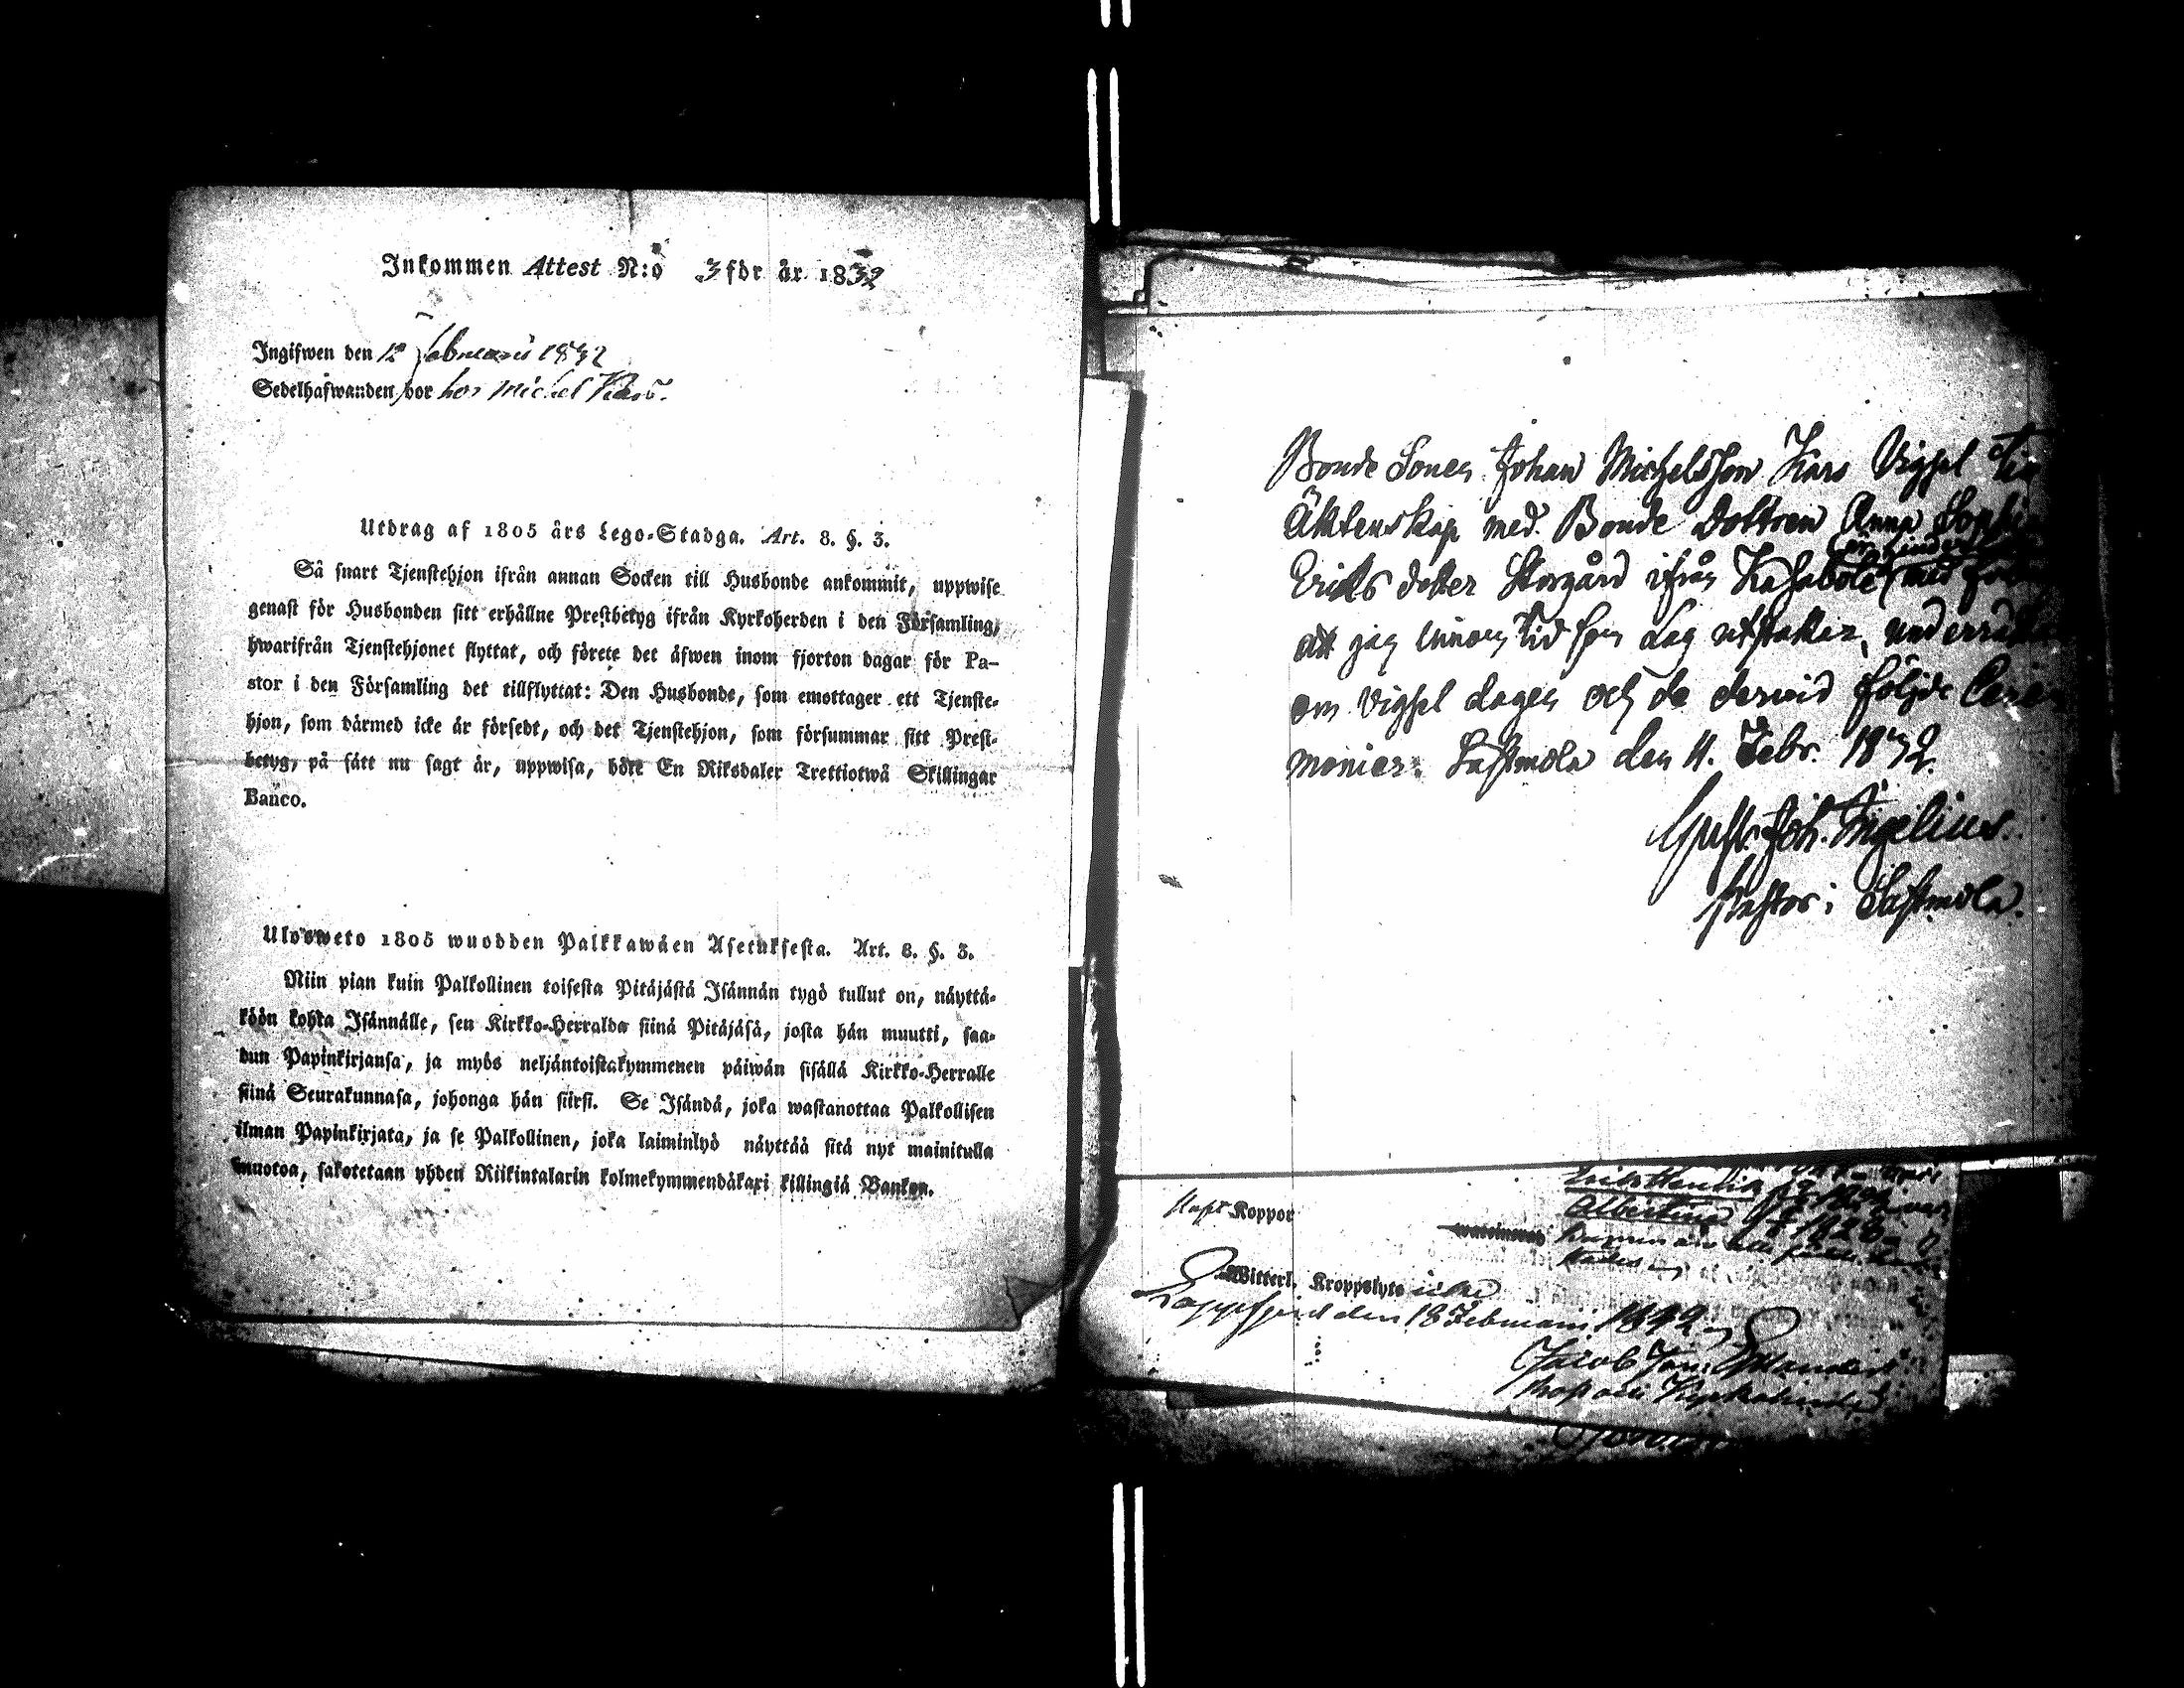 Inkommen Attest N:o 3 för år 1832
Ingifwen den 12 Februarii 1832
Sedelhafwanden bor hos Michel Kars.
Utdrag af 1805 års Lego-Stadga. Art. 8. §. 3.
Så snart Tjenstehjon ifrån annan Socken till Husbonde ankommit, uppwise
genast för Husbonden sitt erhållne Prestbetyg ifrån Kyrkoherden i den Församling,
hwarifrån Tjenstehjonet flyttat, och förete det äfwen inom fjorton dagar för Pa-
stor i den Församling det tillflyttat: Den Husbonde, som emottager ett Tjenste-
hjon, som därmed icke är försedt, och det Tjenstehjon, som försummar sitt Prest-
betyg, på sätt nu sagt är, uppwisa, böte En Riksdaler Trettiotwå Skillingar
Banco.
Ulosweto 1805 wuodden Palkkawäen Asetuksesta. Art. 8. §. 3.
Niin pian kuin Palkollinen toisesta Pitäjästä Isännän tygö tullut on, näyttä-
köön kohta Isännälle, sen Kirkko-Herralda siinä Pitäjäsä, josta hän muutti, saa-
dun Papinkirjansa, ja myös neljäntoistakymmenen päiwän sisällä Kirkko-Herralle
siinä Seurakunnasa, johonga hän siirsi. Se Isändä, joka wastanottaa Palkollisen
ilman Papinkirjata, ja se Palkollinen, joka laiminlyö näyttää sitä nyt mainitulla
muotoa, sakotetaan yhden Riikintalarin kolmekymmendäkaxi killingiä Bankon.
Bonde Sonen Johan Michelsson Kars Vigsel
Äktenskap med Bonde Dottren Anna Sophia
Eriks dotter Storgård ifrån Kasabole med
att jag innom tid som Lag utstakar, underrättas
om Vigsel dagen och de dervid följde Cere-
monier. Sastmola den 11. Febr. 1832.
Gust. Joh. Tigelius.
Pastor i Sastmola.
Haft Koppor
Albertina 1828
Witterl. Kroppslyte icke
Lappfjerd den 18 Februarii 1832
Jacob Jon.